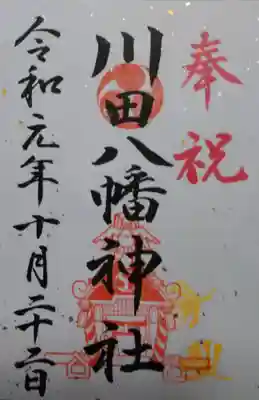 奉祝
川田八幡神社
令和元年十月二十二日